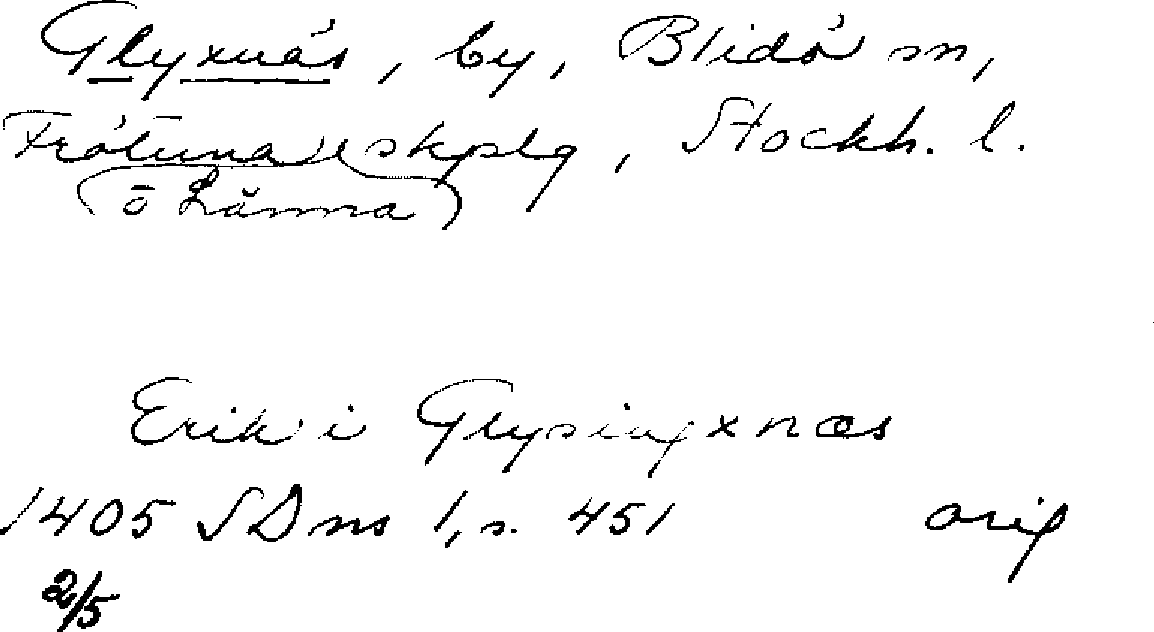 Glyxnäs, by, Blidö sn,
Frötuna skplg, Stockh. l.
(o Länna)
Erik i Glysingxnæs
1405 SDns 1, s. 451 orig
2/5